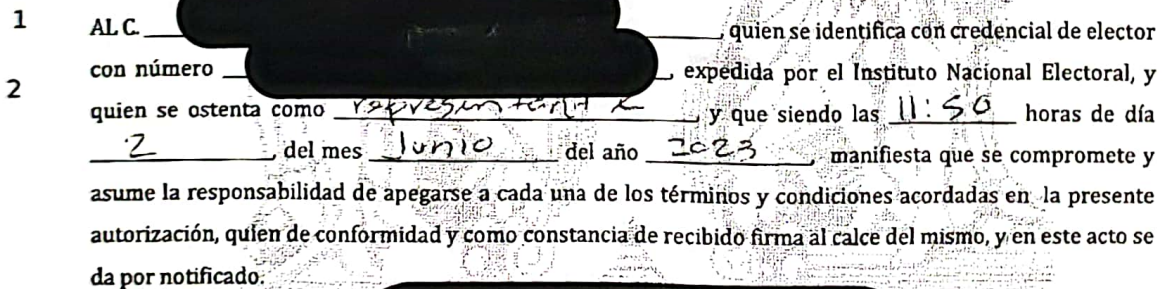 1 AL C. , quien se identifica con credencial de elector
2 con número , expedida por el Instituto Nacional Electoral, y
quien se ostenta como representante y que siendo las 11:50 horas de día
2 , del mes Junio del año 2023 , manifiesta que se compromete y
asume la responsabilidad de apegarse a cada una de los términos y condiciones acordadas en la presente
autorización, quien de conformidad y como constancia de recibido firma al calce del mismo, y en este acto se
da por notificado.